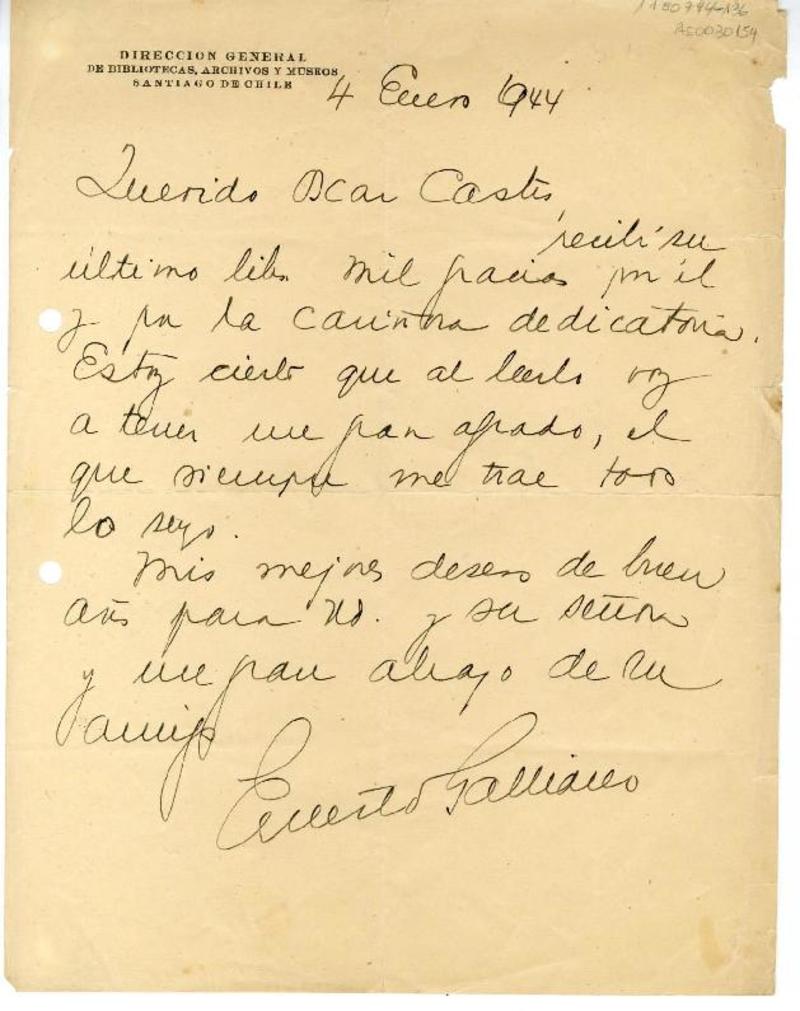 1180794-136
AE0030154
DIRECCION GENERAL
DE BIBLIOTECAS, ARCHIVOS Y MUSEOS
SANTIAGO DE CHILE
4 Enero 1944
Querido Oscar Castro,
recibí su
último libro. Mil gracias por él
y por la cariñosa dedicatoria.
Estoy cierto que al leerlo voy
a tener un gran agrado, el
que siempre me trae todo
lo suyo.
Mis mejores deseos de buen
año para Ud. y su señora
y un gran abrazo de su
amigo
Ernesto Galliano